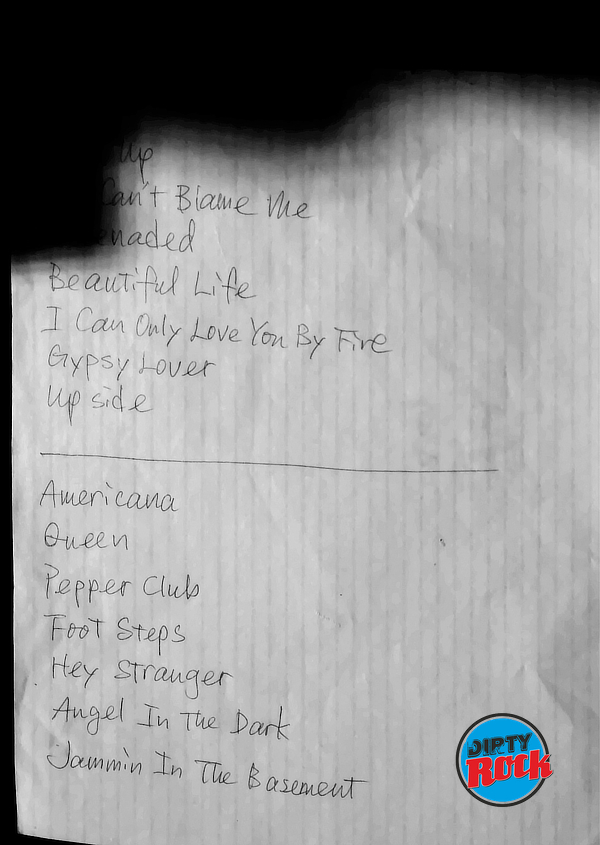 Up
Can't Blame Me
Beautiful Life
I Can Only Love You By Fire
Gypsy Lover
Up side
Americana
Queen
Pepper Club
Foot Steps
Hey Stranger
Angel In The Dark
Jammin In The Basement
DIRTY
Rock